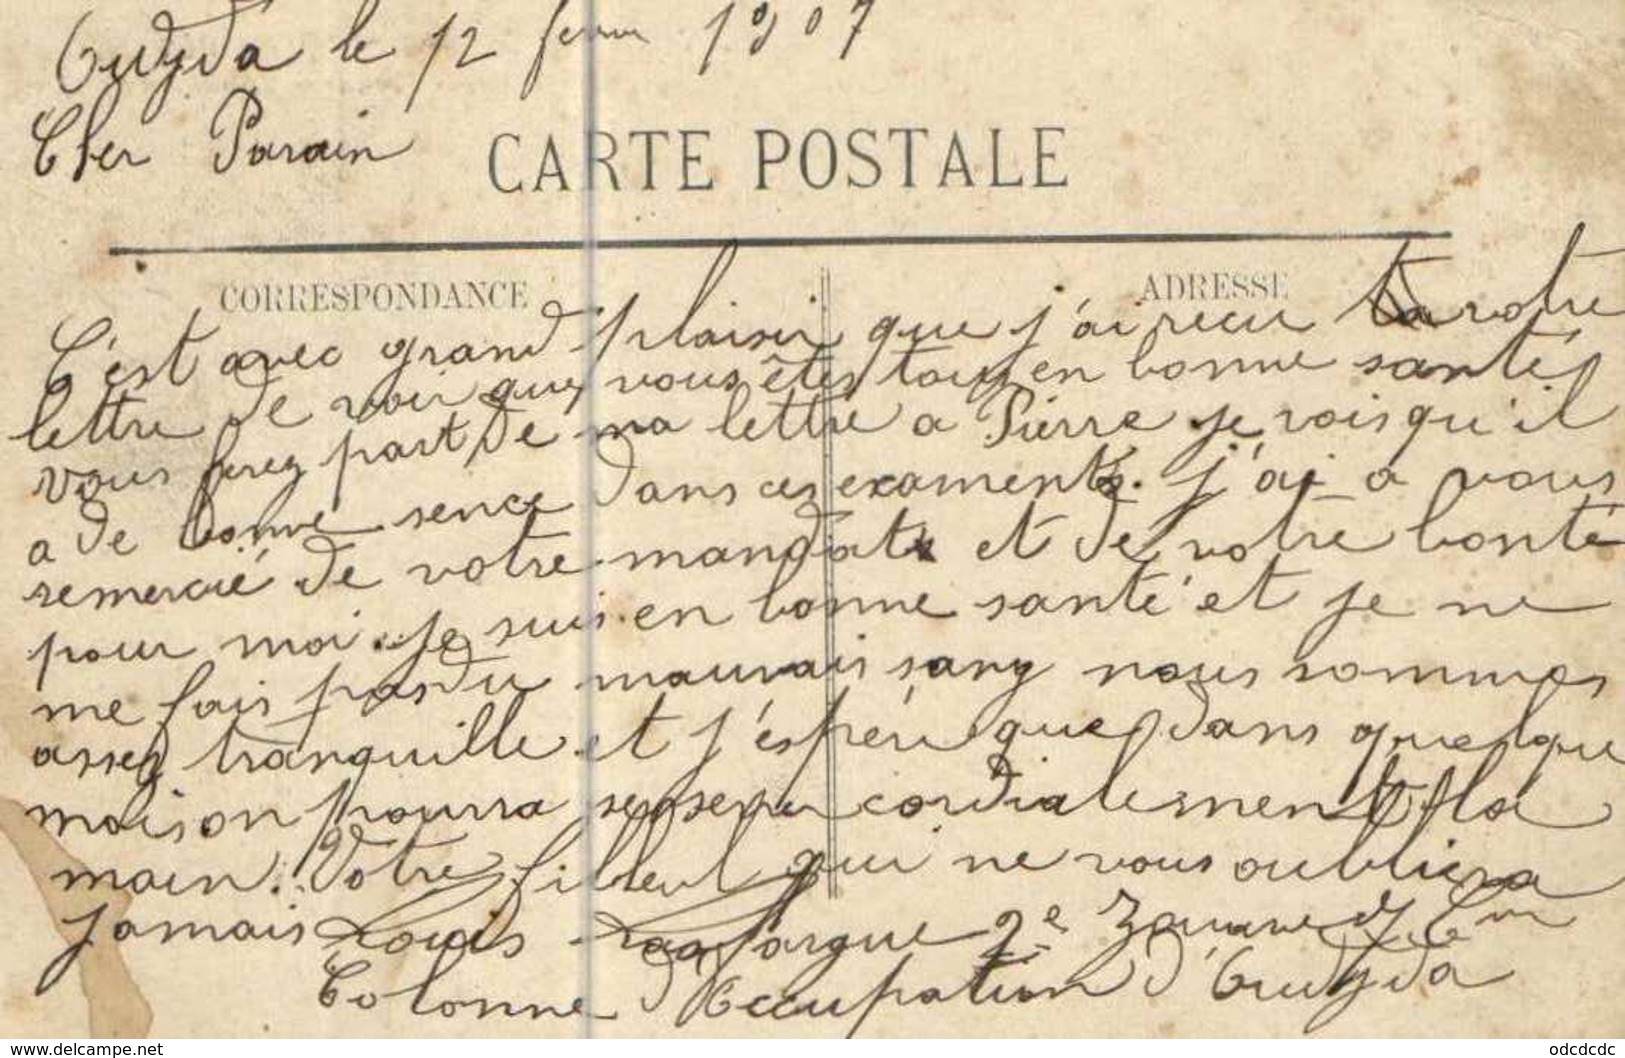 Oudjda le 12 1907
Cher Parain
CARTE POSTALE
CORRESPONDANCE
ADRESSE
C'est avec grand plaisir que j'ai recu votre
lettre de voir que vous êtes tous en bonne santé
vous ferez part de ma lettre a Pierre je vois qu'il
a de bonne sence dans ces examents. j'ai a vous
remercié de votre mandat et de votre bonté
pour moi. je suis en bonne santé et je ne
me fais pas du mauvais sang nous sommes
assez tranquille et j'espére que dans quelque
mois on pourra se cordialement la
main. Votre filleul qui ne vous oubliera
jamais Louis Laffargue 2e Zouaves 7 Cm
Colonne d'Occupation d'Oudjda
www.delcampe.net
odcdcdc